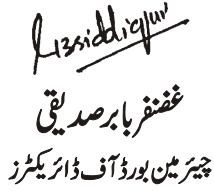 غضنفر بابر صدیقی
چیئرمین بورڈ آف ڈائریکٹرز